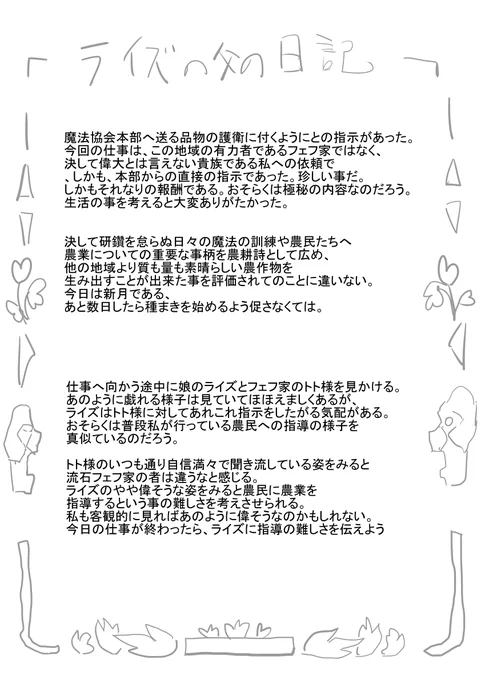 ライズの父の日記
魔法協会本部へ送る品物の護衛に付くようにとの指示があった。
今回の仕事は、この地域の有力者であるフェフ家ではなく、
決して偉大とは言えない貴族である私への依頼で
、しかも、本部からの直接の指示であった。珍しい事だ。
しかもそれなりの報酬である。おそらくは極秘の内容なのだろう。
生活の事を考えると大変ありがたかった。
決して研鑽を怠らぬ日々の魔法の訓練や農民たちへ
農業についての重要な事柄を農耕詩として広め、
他の地域より質も量も素晴らしい農作物を
生み出すことが出来た事を評価されてのことに違いない。
今日は新月である、
あと数日したら種まきを始めるよう促さなくては。
仕事へ向かう途中に娘のライズとフェフ家のトト様を見かける。
あのように戯れる様子は見ていてほほえましくあるが、
ライズはトト様に対してあれこれ指示をしたがる気配がある。
おそらくは普段私が行っている農民への指導の様子を
真似ているのだろう。
トト様のいつも通り自信満々で聞き流している姿をみると
流石フェフ家の者は違うなと感じる。
ライズのやや偉そうな姿をみると農民に農業を
指導するという事の難しさを考えさせられる。
私も客観的に見ればあのように偉そうなのかもしれない。
今日の仕事が終わったら、ライズに指導の難しさを伝えよう